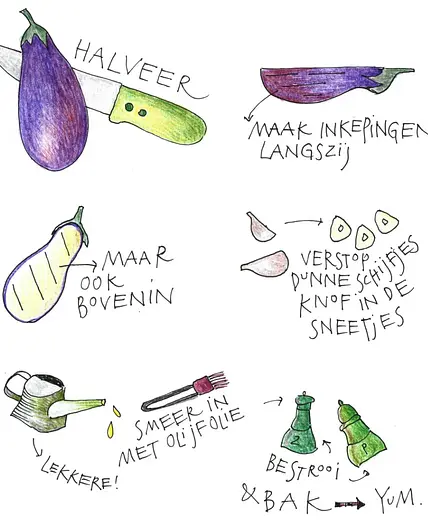 HALVEER
MAAK INKEPINGEN
LANGSZIJ
MAAR
OOK
BOVENIN
VERSTOP
DUNNE SCHIJFJES
KNOF IN DE
SNEETJES
LEKKERE!
SMEER IN
MET OLIJFOLIE
Z
P
BESTROOI
& BAK YUM.